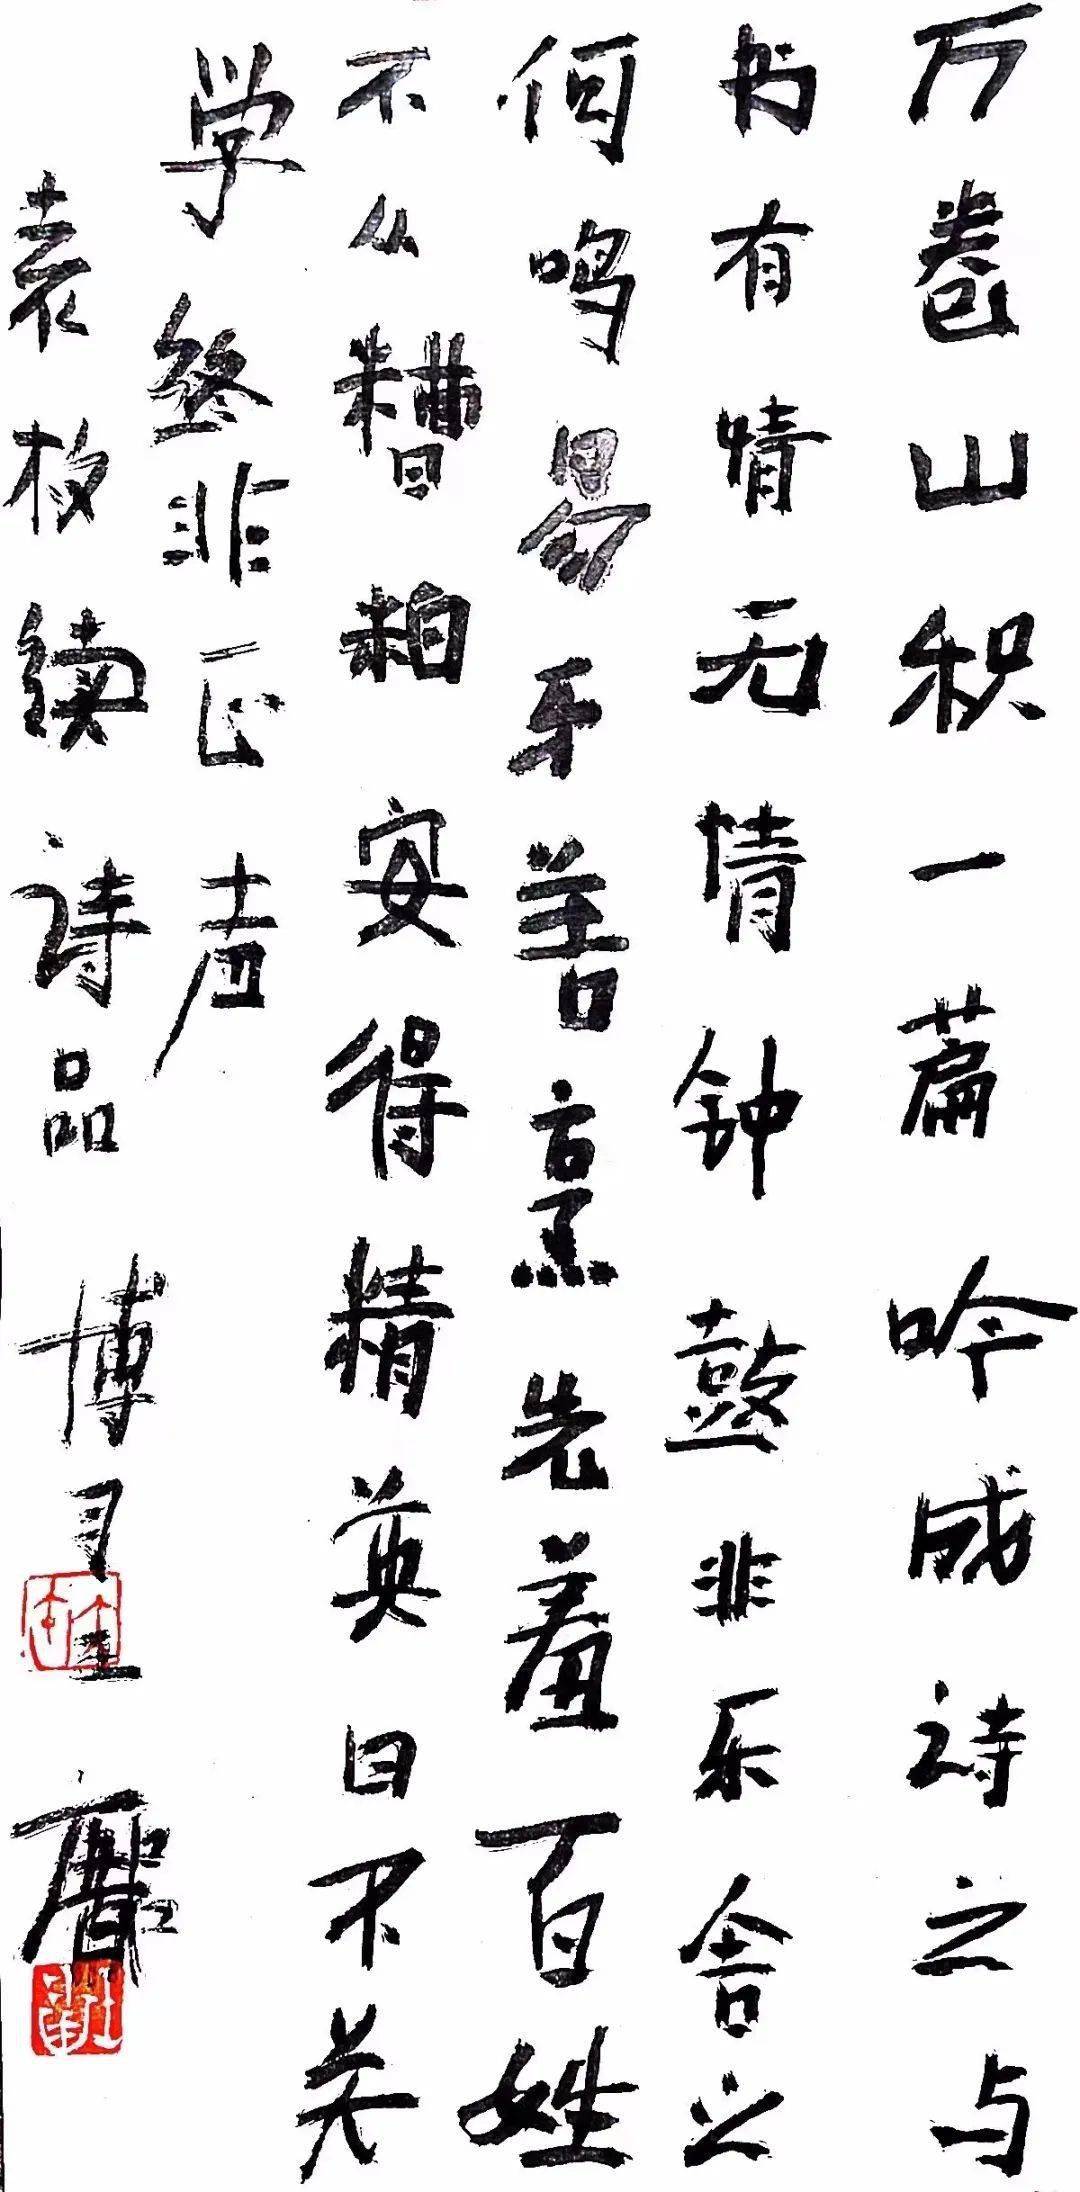 万卷山积一篇吟成诗之与
书有情无情钟鼓非乐舍之
何鸣易牙善烹先羞百姓
不从糟粕安得精英曰不关
学终非正声
袁枚续诗品 博